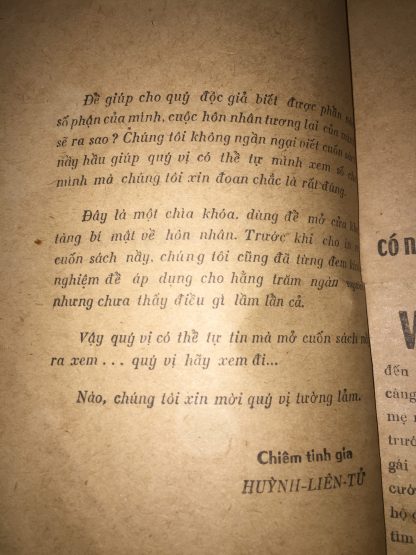 Để giúp cho quý độc giả biết được phần
số phận của mình, cuộc hôn nhân tương lai của
sẽ ra sao? Chúng tôi không ngần ngại viết cuốn
nầy hầu giúp quý vị có thể tự mình xem số
mình mà chúng tôi xin đoan chắc là rất đúng.
Đây là một chìa khóa, dùng để mở cửa
tàng bí mật về hôn nhân. Trước khi cho in
cuốn sách nầy, chúng tôi cũng đã từng đem
nghiệm để áp dụng cho hằng trăm ngàn
nhưng chưa thấy điều gì lầm lẫn cả.
Vậy quý vị có thể tự tin mà mở cuốn sách
ra xem... quý vị hãy xem đi...
Nào, chúng tôi xin mời quý vị tường lãm.
Chiêm tinh gia
HUỲNH-LIÊN-TỬ
có n
V
đến
càng
mẹ
trướ
gái
cườ
hộ
tìm